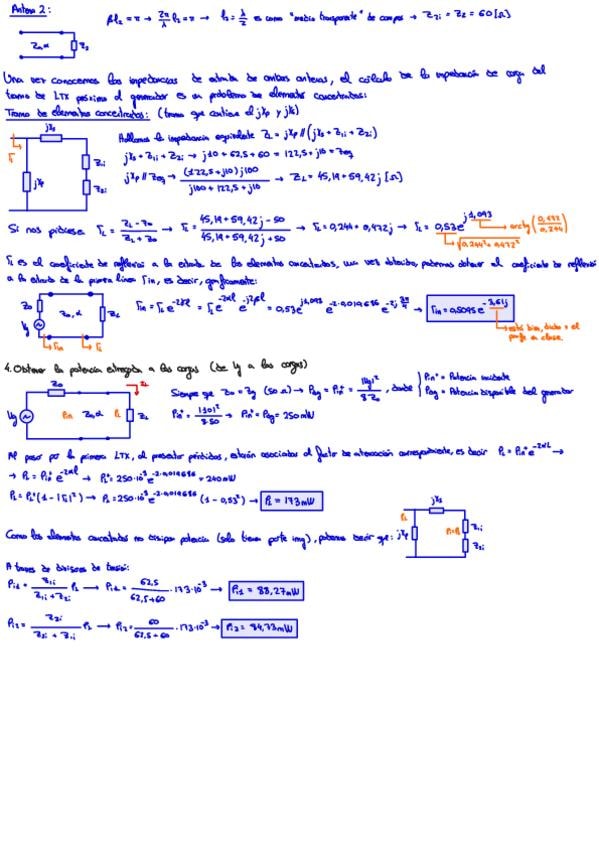 Antena 2: βl₂ = π → 2π/λ l₂ = π → l₂ = λ/2 es como "medio transparente" de campos → Z₂ᵢ = Z₂ = 60 [Ω]
Z₀, α Z₂
Una vez conocemos las impedancias de entrada de ambas antenas, el cálculo de la impedancia de carga del
tramo de LTX próximo al generador es un problema de elementos concentrados:
Tramo de elementos concentrados: (tramo que contiene el jXp y jXs)
jXs
Γ_L jXp Z₁ᵢ Z₂ᵢ
Hallamos la impedancia equivalente Z_L = jXp // (jXs + Z₁ᵢ + Z₂ᵢ)
jXs + Z₁ᵢ + Z₂ᵢ → j10 + 62,5 + 60 = 122,5 + j10 = Zeq
jXp // Zeq → (122,5 + j10) j100 / j100 + 122,5 + j10 → Z_L = 45,19 + 59,42j [Ω]
Si nos pidiese Γ_L = Z_L - Z₀ / Z_L + Z₀ → Γ_L = 45,19 + 59,42j - 50 / 45,19 + 59,42j + 50 → Γ_L = 0,244 + 0,472j → Γ_L = 0,53e^(j1,093) → arctg(0,472/0,244)
√0,244² + 0,472²
Γ_L es el coeficiente de reflexión a la entrada de los elementos concentrados, una vez obtenido, podemos obtener el coeficiente de reflexión
a la entrada de la primera línea Γin, es decir, gráficamente:
Z₀ Vg Z₀, α Z_L
Γin Γ_L
Γin = Γ_L e^(-2γl) = Γ_L e^(-2αl) e^(-j2βl) = 0,53e^(j1,093) →
Γin = 0,5095 e^(-3,61j)
está bien, dicho x el profe en clase.
4. Obtener la potencia entregada a las cargas (de Vg a las cargas)
Z₀ Vg Pin Z₀, α P_L Z_L
Siempre que Z₀ = Zg (50 Ω) → Pavg = Pin⁺ = |Vg|² / 8 Z₀, donde { Pin⁺ = Potencia incidente
Pavg = Potencia disponible del generador
Pin⁺ = |10|² / 8·50 → Pin⁺ = Pavg = 250 mW
Al pasar por la primera LTX, al presentar pérdidas, estarán asociadas al factor de atenuación correspondiente, es decir P_L = Pin⁺ e^(-2αl) →
→ P_L⁺ = Pin⁺ e^(-2αl) → = 240 mW
P_L = P_L⁺ (1 - |Γ_L|²) → (1 - 0,53²) → P_L = 173 mW
Como los elementos concentrados no disipan potencia (solo tienen parte img), podemos decir que:
jXs
P_L jXp Z₁ᵢ Z₂ᵢ
A través de divisores de tensión:
Pᵢ₁ = Z₁ᵢ / Z₁ᵢ + Z₂ᵢ P_L → Pᵢ₁ = 62,5 / 62,5 + 60 · 173·10⁻³ → Pᵢ₁ = 88,27 mW
Pᵢ₂ = Z₂ᵢ / Z₂ᵢ + Z₁ᵢ P_L → Pᵢ₂ = 60 / 62,5 + 60 · 173·10⁻³ → Pᵢ₂ = 84,73 mW